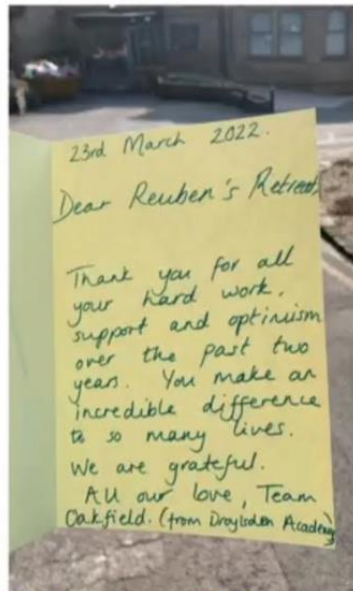 23rd March 2022.
Dear Reuben's Retreat,
Thank you for all
your hard work,
support and optimism
over the past two
years. You make an
incredible difference
to so many lives.
We are grateful.
All our love, Team
Oakfield. (from Droylsden Academy)